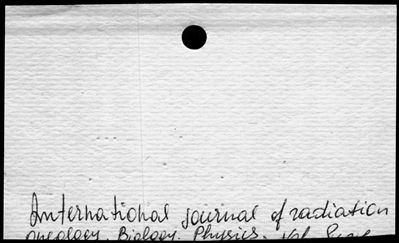 International journal of radiation
oncology, Biology, Physics. Vol